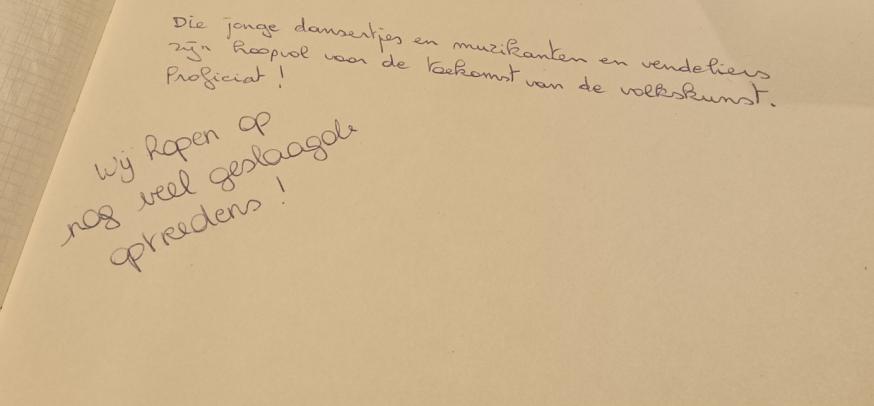 Die jonge dansertjes en muzikanten en vendeliers
zijn hoopvol voor de toekomst van de volkskunst.
Proficiat !
Wij hopen op
nog veel geslaagde
optredens !